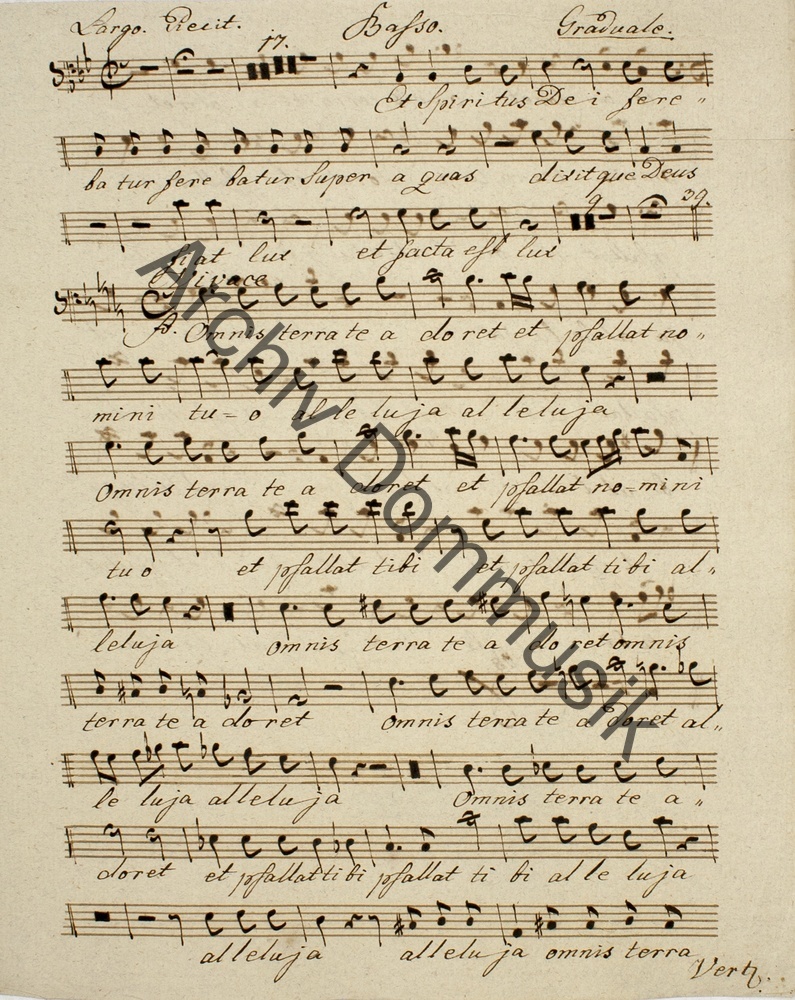 Largo. Recit. Basso. Graduale.
17.
Et Spiritus Dei fere "
batur fere batur super a quas dixitque Deus
9 39.
fiat lux et facta est lux
Vivace
f. Omnis terra te a do ret et psallat no "
mini tu = o al le luja al leluja
Omnis terra te a doret et psallat no = mini
tuo et psallat tibi et psallat tibi al "
leluja omnis terra te a do ret omnis
terra te a do ret omnis terra te a doret al "
le luja alleluja Omnis terra te a "
doret et psallat tibi psallat ti bi al le luja
alleluja alleluja omnis terra
Vert.
Archiv Dommusik